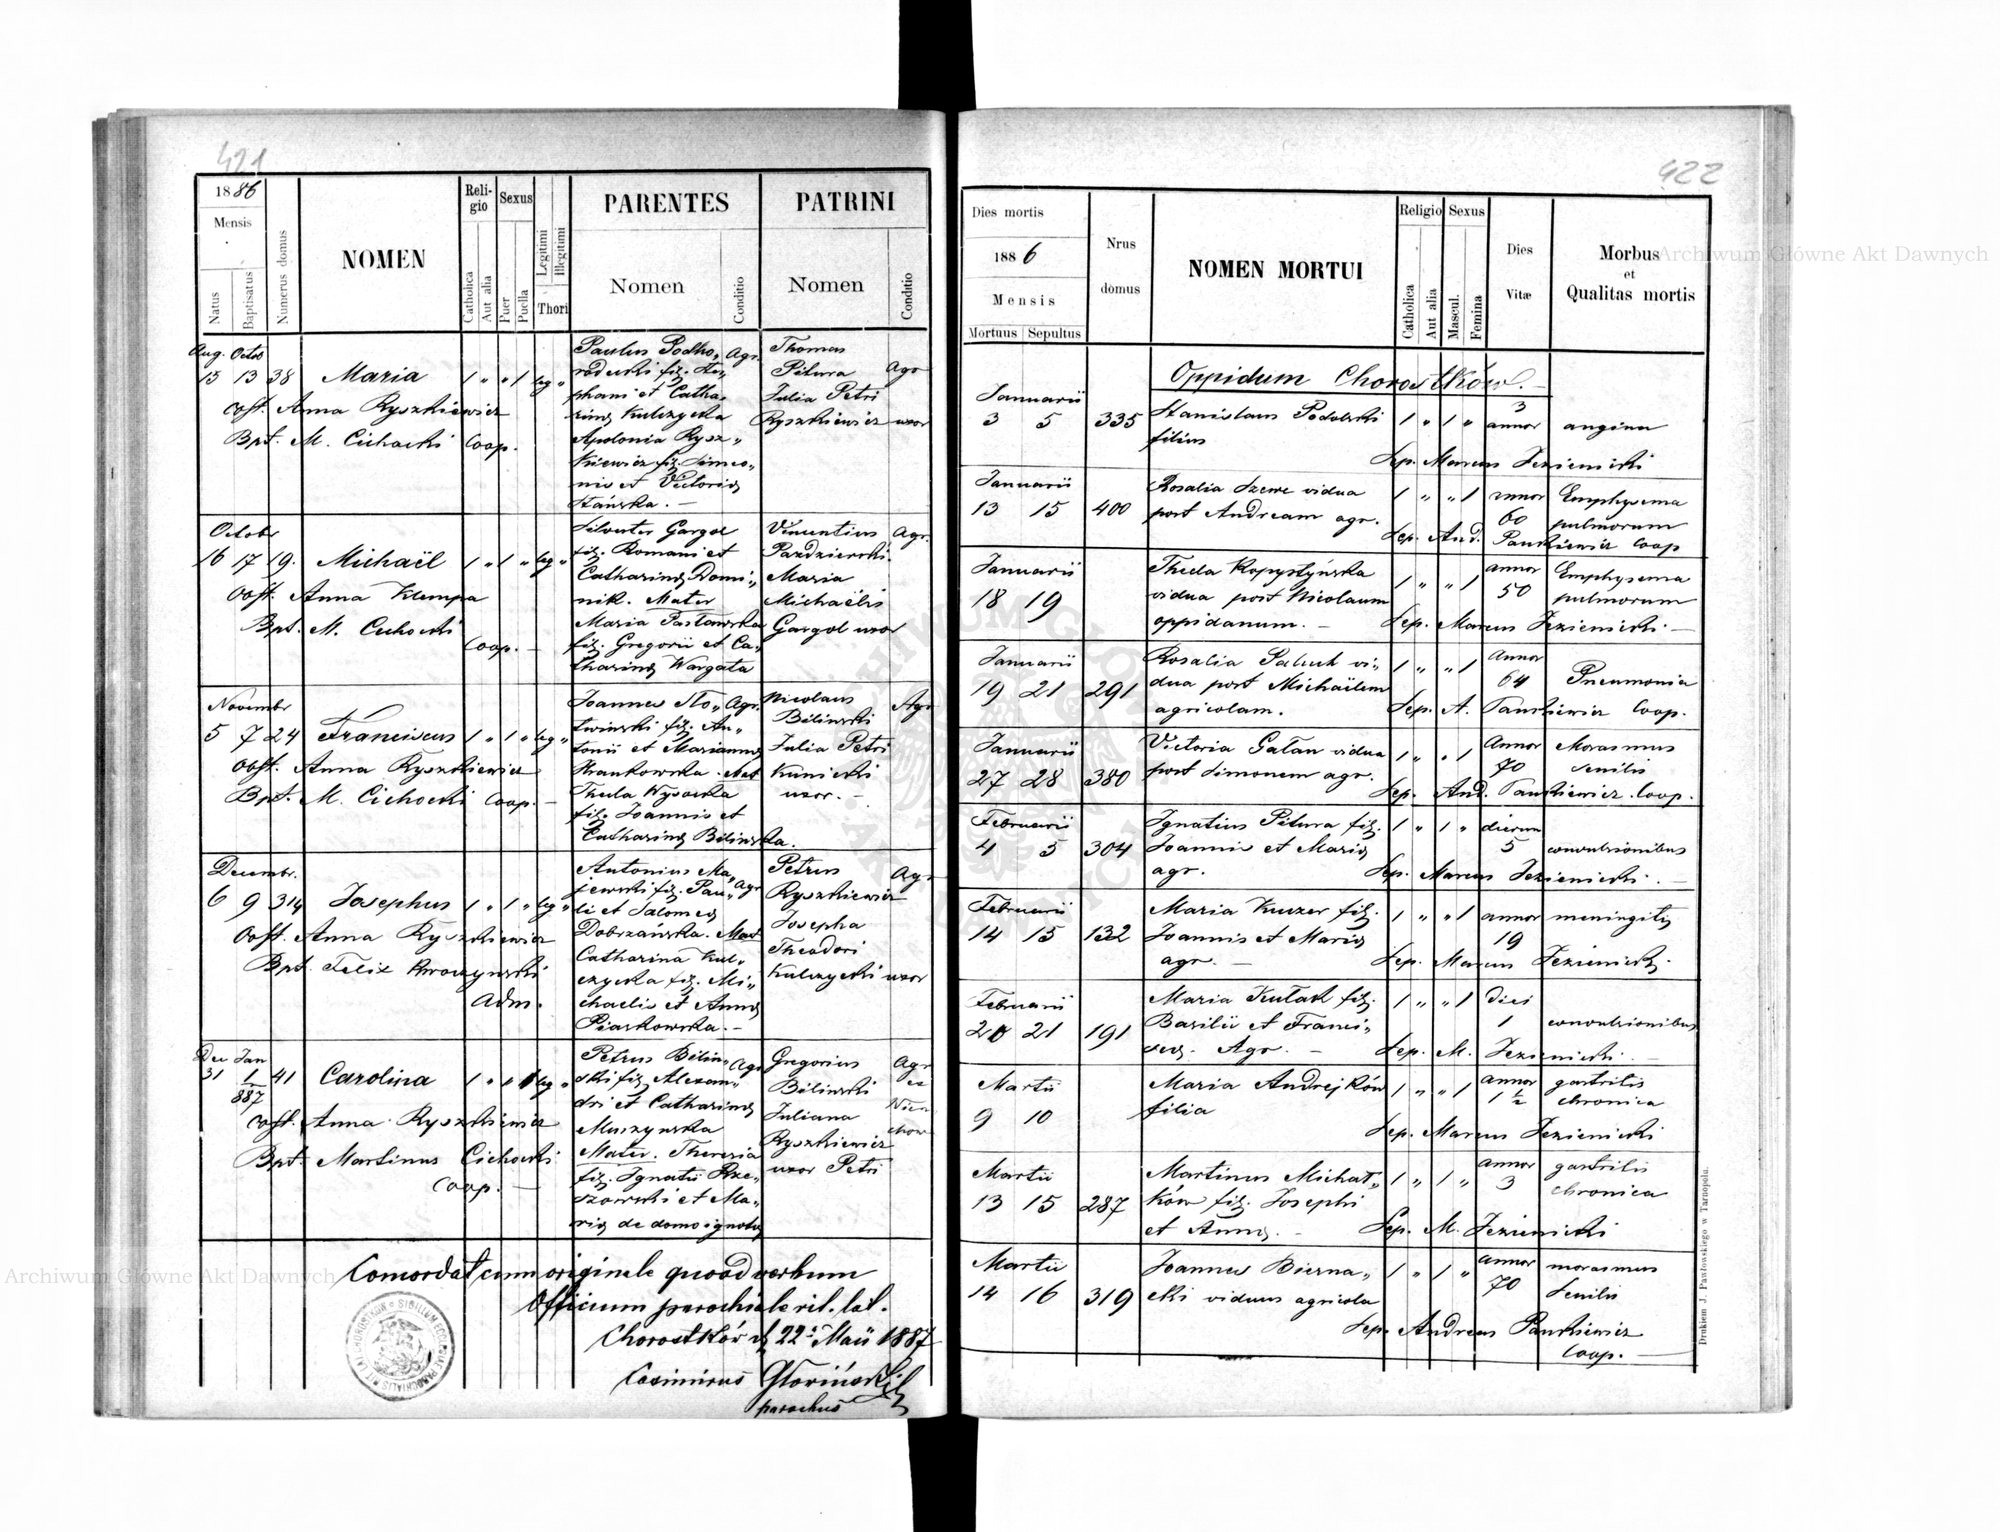 421
1886
Mensis
Natus
Baptisatus
Numerus domus
NOMEN
Religio
Catholica
Aut alia
Sexus
Puer
Puella
Legitimi
Illegitimi
Thori
PARENTES
Nomen
Conditio
PATRINI
Nomen
Conditio
Aug. Octob
15 13 38 Maria 1 " " 1 leg "
obst. Anna Ryszkiewicz
Bpt. M. Cichocki Coop.
Paulus Podho„ Agr.
rodecki fil. Ste„
phani et Catha„
rinæ Kulczycka
Apolonia Rysz„
kiewicz fil. Simeo„
nis et Victoriæ
Stańska. —
Thomas
Pitura Agr
Julia Petri
Ryszkiewicz uxor
Octobr
16 17 19. Michaël 1 " 1 " leg "
obst. Anna Klempa
Bpt. M. Cichocki
Coop. —
Silvester Gargol
fil. Romani et
Catharinæ Domi„
nik. Mater
Maria Pasławska
fil. Gregorii et Ca„
tharinæ Wargata
Vincentius Agr.
Pazdzierski.
Maria
Michaëlis
Gargol uxor
Novembr
5 7 24 Franciscus 1 " 1 " leg "
obst. Anna Ryszkiewicz
Bpt. M. Cichocki Coop. —
Joannes Sło„ Agr.
twinski fil. An„
tonii et Mariannæ
Krankowska. Mat
Thecla Wysocka
fil. Joannis et
Catharinæ Bilinska.
Nicolaus Agr
Bilinski
Julia Petri
Kunicki
uxor. —
Decembr.
6 9 314 Josephus 1 " 1 " leg "
Obst. Anna Ryszkiewicz
Bpt. Felix Kroczynski
Adm.
Antonius Ma„
jewski fil. Pau„ Agr
li et Salomeæ
Dobrzańska. Mat
Catharina Kul„
czycka fil. Mi„
chaelis et Annæ
Piaskowska. —
Petrus Agr
Ryszkiewicz
Josepha
Theodori
Kulczycki uxor
Dec Jan
31 1/887 41 Carolina 1 " " 1 leg "
obst. Anna Ryszkiewicz
Bpt. Martinus Cichocki
Coop. —
Petrus Bilin„ Agr
ski fil. Alexan„
dri et Catharinæ
Muszynska
Mater. Theresia
fil. Ignatii Rze„
szowski et Ma„
riæ de domo ignotæ
Gregorius Agr
Bilinski
Juliana
Ryszkiewicz
uxor Petri
Concordat cum originale quoad verbum
Officium parochiale rit. lat.
Chorostków d. 22: Maii 1887
Casimirus
parochus
422
Dies mortis
1886
Mensis
Mortuus Sepultus
Nrus
domus
NOMEN MORTUI
Religio
Catholica
Aut alia
Sexus
Mascul.
Femina
Dies
Vitæ
Morbus
et
Qualitas mortis
Oppidum Chorostków. —
Januarii
3 5 335 Stanislaus Podolski 1 " 1 " 3 annor angina
filius
Sep. Marcus Jezienicki
Januarii
13 15 400 Rosalia Szewc vidua 1 " " 1 annor 60 Emphysema
post Andream agr. pulmorum
Sep. And. Pankiewicz Coop
Januarii
18 19 Thecla Kopystyńska 1 " " 1 annor 50 Emphysema
vidua post Nicolaum pulmorum
oppidanum. — Sep. Marcus Jezienicki. —
Januarii
19 21 291 Rosalia Saluk vi„ 1 " " 1 annor 64 Pneumonia
dua post Michaëlem
agricolam. Sep. A. Pankiewicz Coop.
Januarii
27 28 380 Victoria Gałan vidua 1 " " 1 annor 70 Morasmus
post Simonem agr. senilis
Sep. And. Pankiewicz. Coop.
Februarii
4 5 304 Ignatius Pitura fil. 1 " 1 " dierum 5 convulsionibus
Joannis et Mariæ
agr. Sep. Marcus Jezienicki. —
Februarii
14 15 132 Maria Kuczer fil. 1 " " 1 annor 19 meningitis
Joannis et Mariæ
agr. — Sep. Marcus Jezienicki.
Februarii
20 21 191 Maria Kułak fil. 1 " " 1 diei 1 convulsionibus
Basilii et Franci„
scæ. Agr. — Sep. M. Jezienicki. —
Martii
9 10 Maria Andrejków 1 " " 1 annor 1 1/2 gastritis
filia chronica
Sep. Marcus Jezienicki
Martii
13 15 287 Martinus Michał„ 1 " 1 " annor 3 gastritis
ków fil. Josephi chronica
et Annæ. — Sep. M. Jezienicki
Martii
14 16 319 Joannes Bierna„ 1 " 1 " annor 70 morasmus
cki viduus agricola senilis
Sep. Andreas Pankiewicz
Coop. —
Drukiem J. Pawłowskiego w Tarnopolu.
Archiwum Główne Akt Dawnych
Archiwum Główne Akt Dawnych